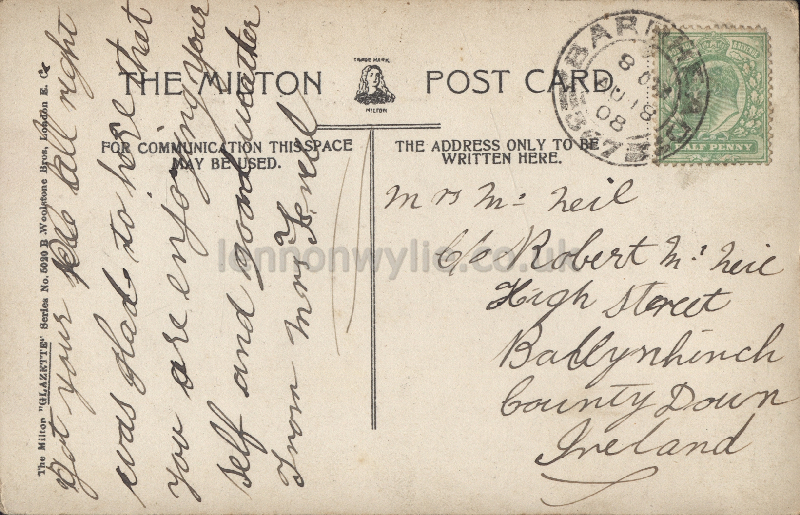 THE MILTON POST CARD
TRADE MARK
MILTON
FOR COMMUNICATION THIS SPACE
MAY BE USED.
THE ADDRESS ONLY TO BE
WRITTEN HERE.
The Milton "GLAZETTE" Series No. 5020 B Woolstone Bros, London E. C.
Got your all right
was glad to hire that
you are enjoying your
self and good weather
From Mrs
Mrs Mc Neil
C/o Robert Mc Neil
High Street
Ballynhinch
County Down
Ireland
BARRHEAD
AU 18
08
HALF PENNY
lennonwylie.co.uk